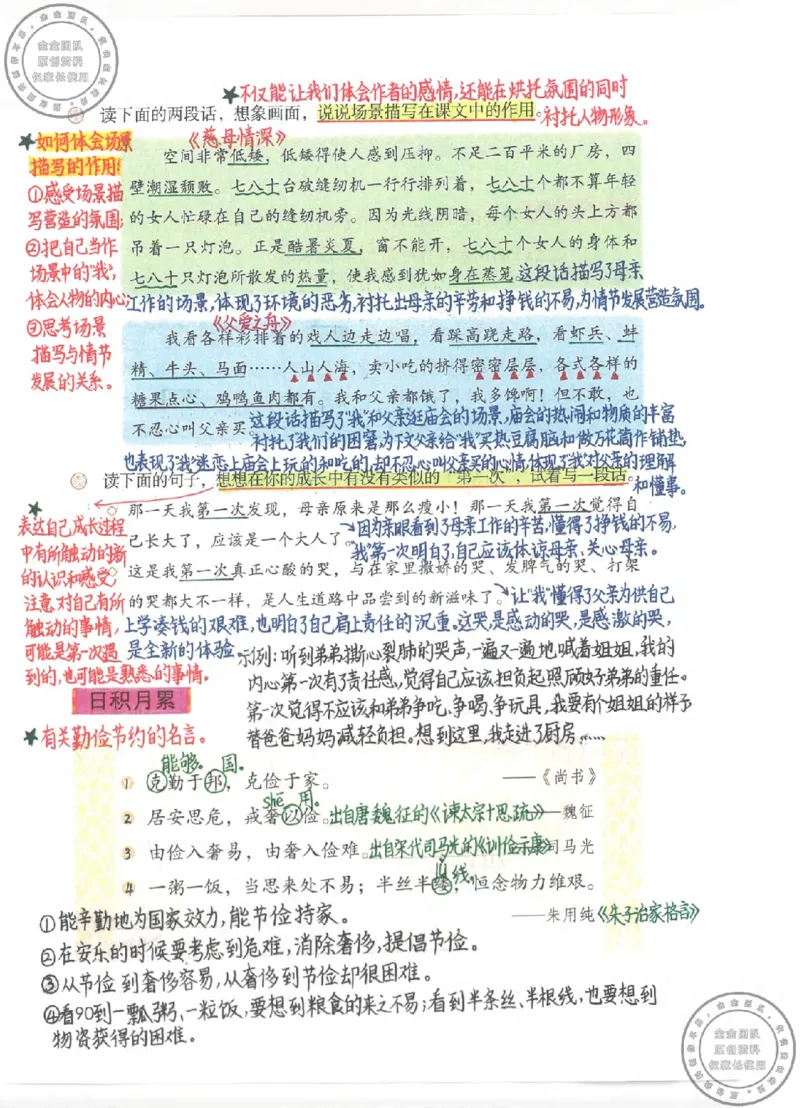 金金团队
原创资料
仅家长使用
★不仅能让我们体会作者的感情,还能在烘托氛围的同时
衬托人物形象。
读下面的两段话，想象画面，说说场景描写在课文中的作用。
★如何体会场景
描写的作用:
①感受场景描
写营造的氛围;
②把自己当作
场景中的“我”,
体会人物的内心
③思考场景
描写与情节
发展的关系。
《慈母情深》
空间非常低矮，低矮得使人感到压抑。不足二百平米的厂房，四
壁潮湿颓败。七八十台破缝纫机一行行排列着，七八十个都不算年轻
的女人忙碌在自己的缝纫机旁。因为光线阴暗，每个女人的头上方都
吊着一只灯泡。正是酷暑炎夏，窗不能开，七八十个女人的身体和
七八十只灯泡所散发的热量，使我感到犹如身在蒸笼
这段话描写了母亲
工作的场景,体现了环境的恶劣,衬托出母亲的辛劳和挣钱的不易,为情节发展营造氛围。
《父爱之舟》
我看各样彩排着的戏人边走边唱，看踩高跷走路，看虾兵、蚌
精、牛头、马面……人山人海，卖小吃的挤得密密层层，各式各样的
糖果点心、鸡鸭鱼肉都有。我和父亲都饿了，我多馋啊！但不敢，也
不忍心叫父亲买
这段话描写了“我”和父亲逛庙会的场景,庙会的热闹和物质的丰富
衬托了我们的困窘,为下文父亲给“我”买热豆腐脑和做万花筒作铺垫,
也表现了“我”迷恋上庙会上玩的和吃的,却不忍心叫父亲买的心情,体现了我对父亲的理解
和懂事。
读下面的句子，想想在你的成长中有没有类似的“第一次”，试着写一段话。
★
表达自己成长过程
中有所触动的新
的认识和感受。
注意,对自己有所
触动的事情,
可能是第一次遇
到的,也可能是熟悉的事情。
那一天我第一次发现，母亲原来是那么瘦小！那一天我第一次觉得自
己长大了，应该是一个大人了。
因为亲眼看到了母亲工作的辛苦,懂得了挣钱的不易,
“我”第一次明白了,自己应该体谅母亲、关心母亲。
这是我第一次真正心酸的哭，与在家里撒娇的哭、发脾气的哭、打架
的哭都大不一样，是人生道路中品尝到的新滋味了。
让“我”懂得了父亲为供自己
上学凑钱的艰难,也明白了自己肩上责任的沉重。这哭,是感动的哭,是感激的哭,
是全新的体验。
示例:听到弟弟撕心裂肺的哭声,一遍又一遍地喊着姐姐,我的
内心第一次有了责任感,觉得自己应该担负起照顾好弟弟的重任。
第一次觉得不应该和弟弟争吃、争喝、争玩具,我要有个姐姐的样子
替爸爸妈妈减轻负担。想到这里,我走进了厨房……
日积月累
★有关勤俭节约的名言。
能够。 国。
1 克勤于邦，克俭于家。 ——《尚书》
shē 用。
2 居安思危，戒奢以俭。出自唐魏征的《谏太宗十思疏》——魏征
3 由俭入奢易，由奢入俭难。出自宋代司马光的《训俭示康》司马光
线。
4 一粥一饭，当思来处不易；半丝半缕，恒念物力维艰。
——朱用纯《朱子治家格言》
①能辛勤地为国家效力,能节俭持家。
②在安乐的时候要考虑到危难,消除奢侈,提倡节俭。
③从节俭到奢侈容易,从奢侈到节俭却很困难。
④看90到一瓢粥、一粒饭,要想到粮食的来之不易;看到半条丝、半根线,也要想到
物资获得的困难。
金金团队
原创资料
仅家长使用